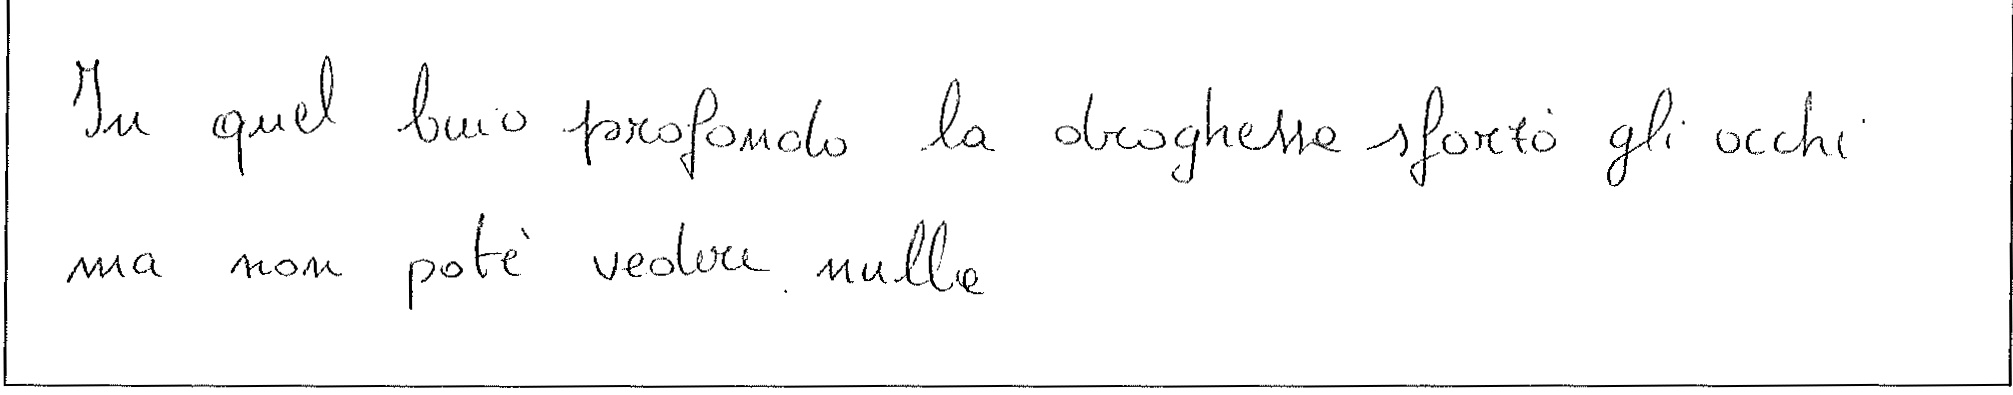 In quel buio profondo la draghessa sfortò gli occhi
ma non potè vedere nulla